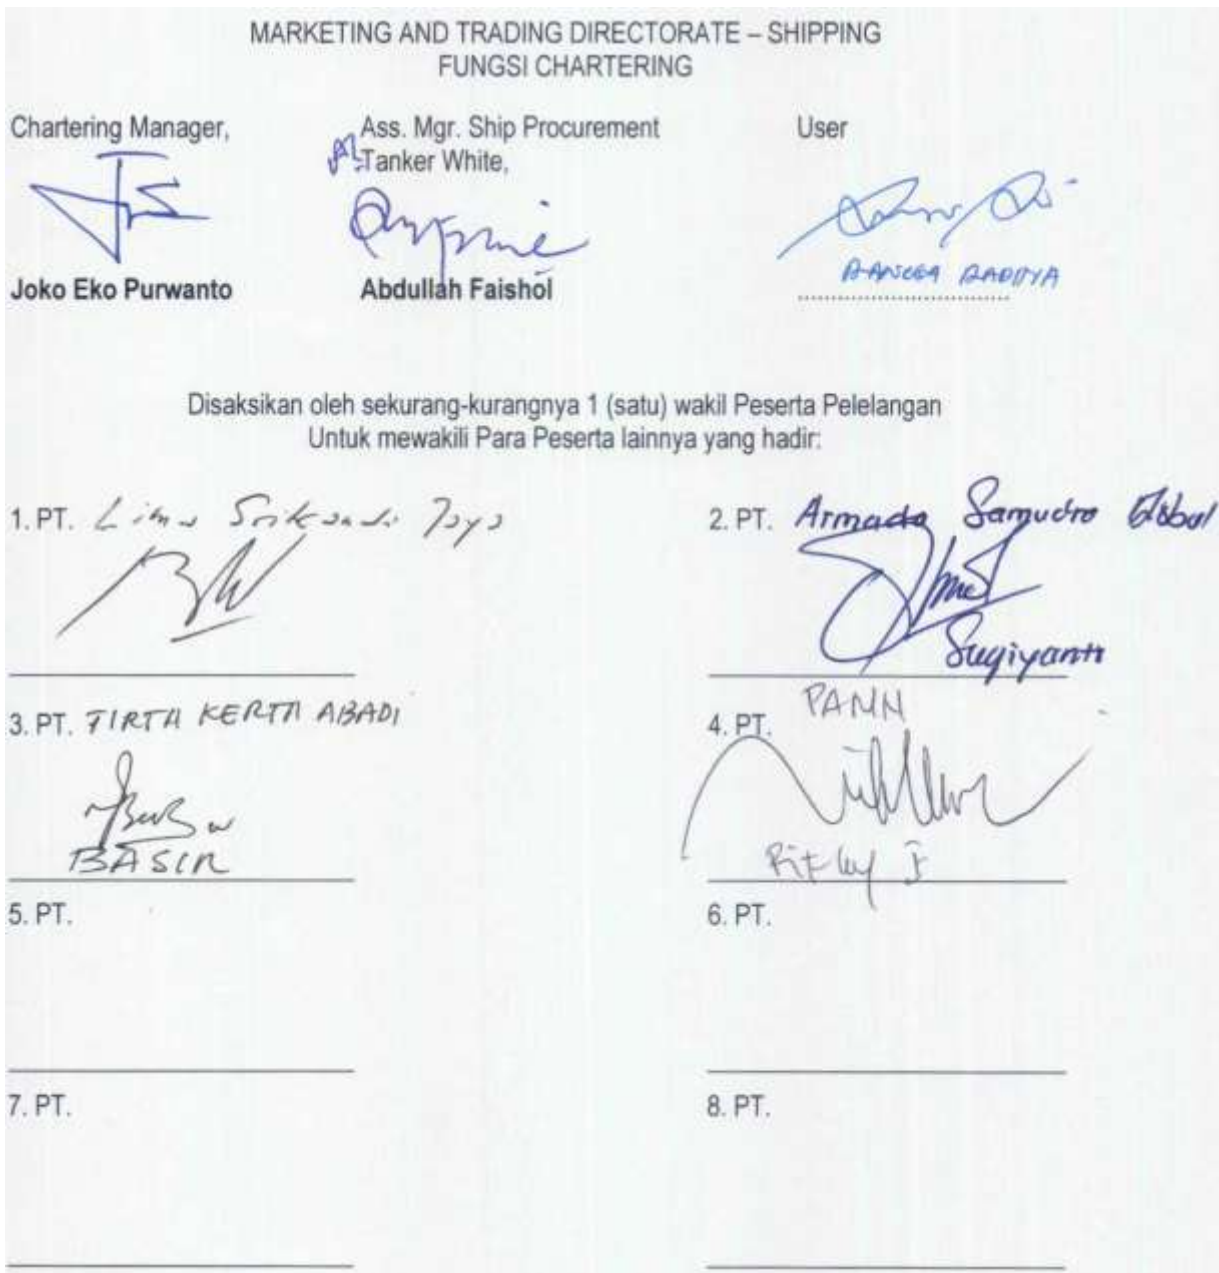 MARKETING AND TRADING DIRECTORATE – SHIPPING
FUNGSI CHARTERING
Chartering Manager,
Ass. Mgr. Ship Procurement
Tanker White,
User
Joko Eko Purwanto
Abdullah Faishol
Disaksikan oleh sekurang-kurangnya 1 (satu) wakil Peserta Pelelangan
Untuk mewakili Para Peserta lainnya yang hadir:
1. PT. Lima Srikandi Jaya
2. PT. Armada Samudra Global
Sugiyanti
3. PT. TIRTA KERTA ABADI
BASIR
4. PT. PANN
5. PT.
6. PT.
7. PT.
8. PT.